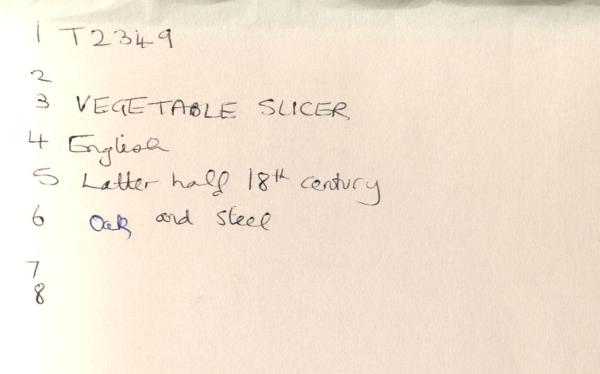 1 T2349
2
3 VEGETABLE SLICER
4 English
5 Latter half 18th century
6 Oak and steel
7
8